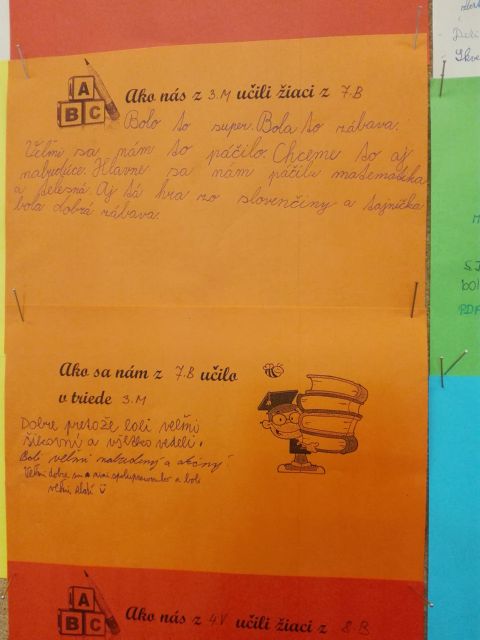 A
B C
Ako nás z 3.M učili žiaci z 7.B
Bolo to super. Bola to zábava.
Veľmi sa nám to páčilo. Chceme to aj
nabudúce. Hlavne sa nám páčila matematika
a telesná. Aj tá hra zo slovenčiny a tajnička
bola dobrá zábava.
Ako sa nám z 7.B učilo
v triede 3.M
Dobre pretože boli veľmi
šikovný a všetko vedeli.
Boli veľmi nabudený a akčný
Veľmi dobre sa s nimi spolupracovalo a boli
veľmi zlatí
A
B C
Ako nás z 4.V učili žiaci z 8.B